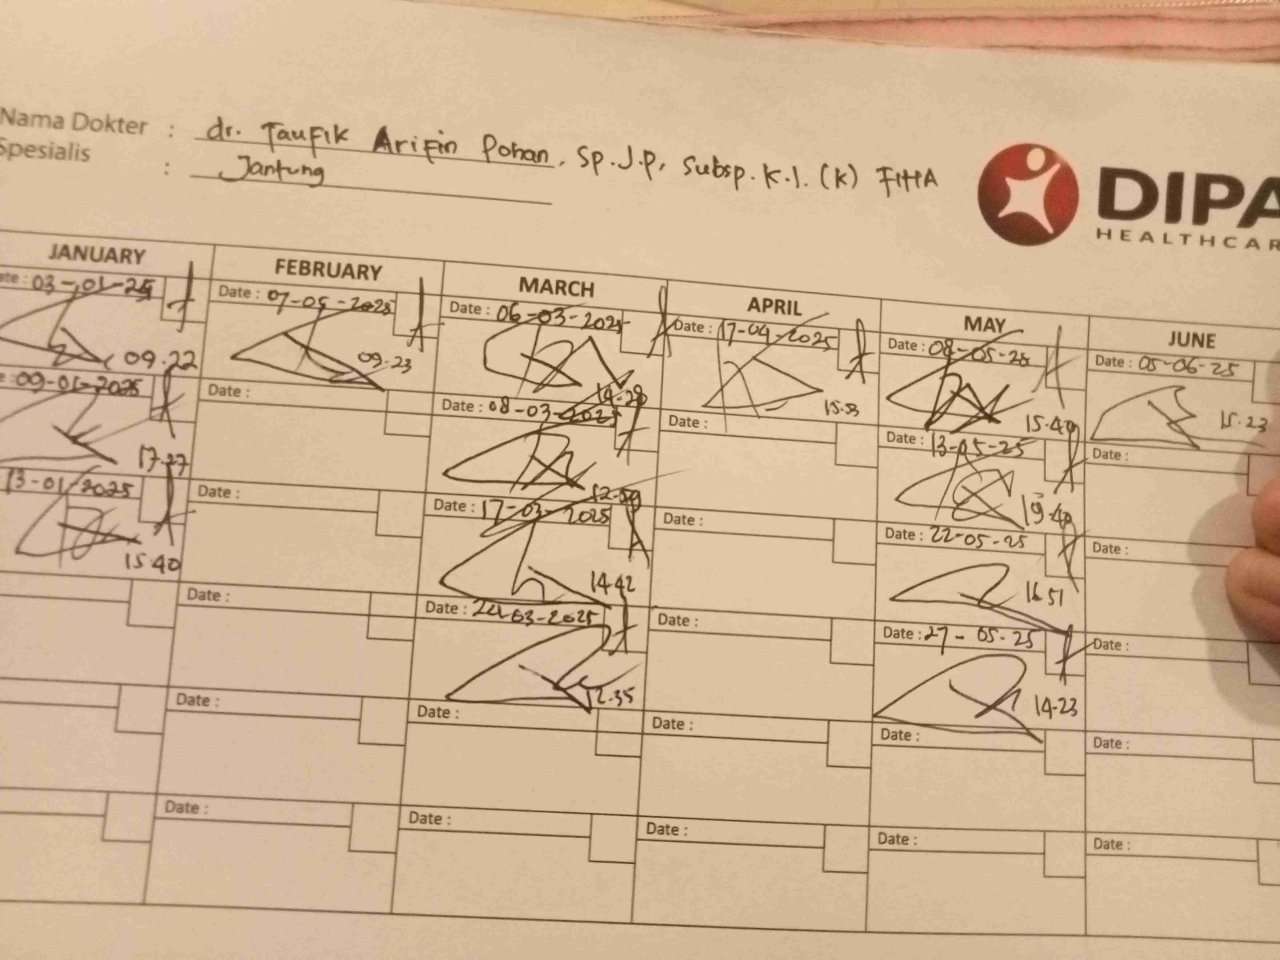 Nama Dokter : dr. Taufik Arifin Pohan, Sp.J.P, Subsp.K.I. (K) FIHA
Spesialis : Jantung
DIPA
HEALTHCAR
JANUARY FEBRUARY MARCH APRIL MAY JUNE
03-01-25 Date : 07-05-2025 Date : 06-03-2025 Date : 17-04-2025 Date : 08-05-25 Date : 05-06-25
09.22 09.23 14.28 15.53 15.40 15.23
09-01-2025 Date : Date : 08-03-2025 Date : Date : 13-05-25 Date :
17.27 12.59 19.40
13-01-2025 Date : 17-03-2025 Date : 22-05-25 Date :
15.40 14.42 16.51
Date : Date : 24-03-2025 Date : Date : 27-05-25 Date :
12.35 14.23
Date : Date : Date : Date : Date :
Date : Date : Date : Date : Date :